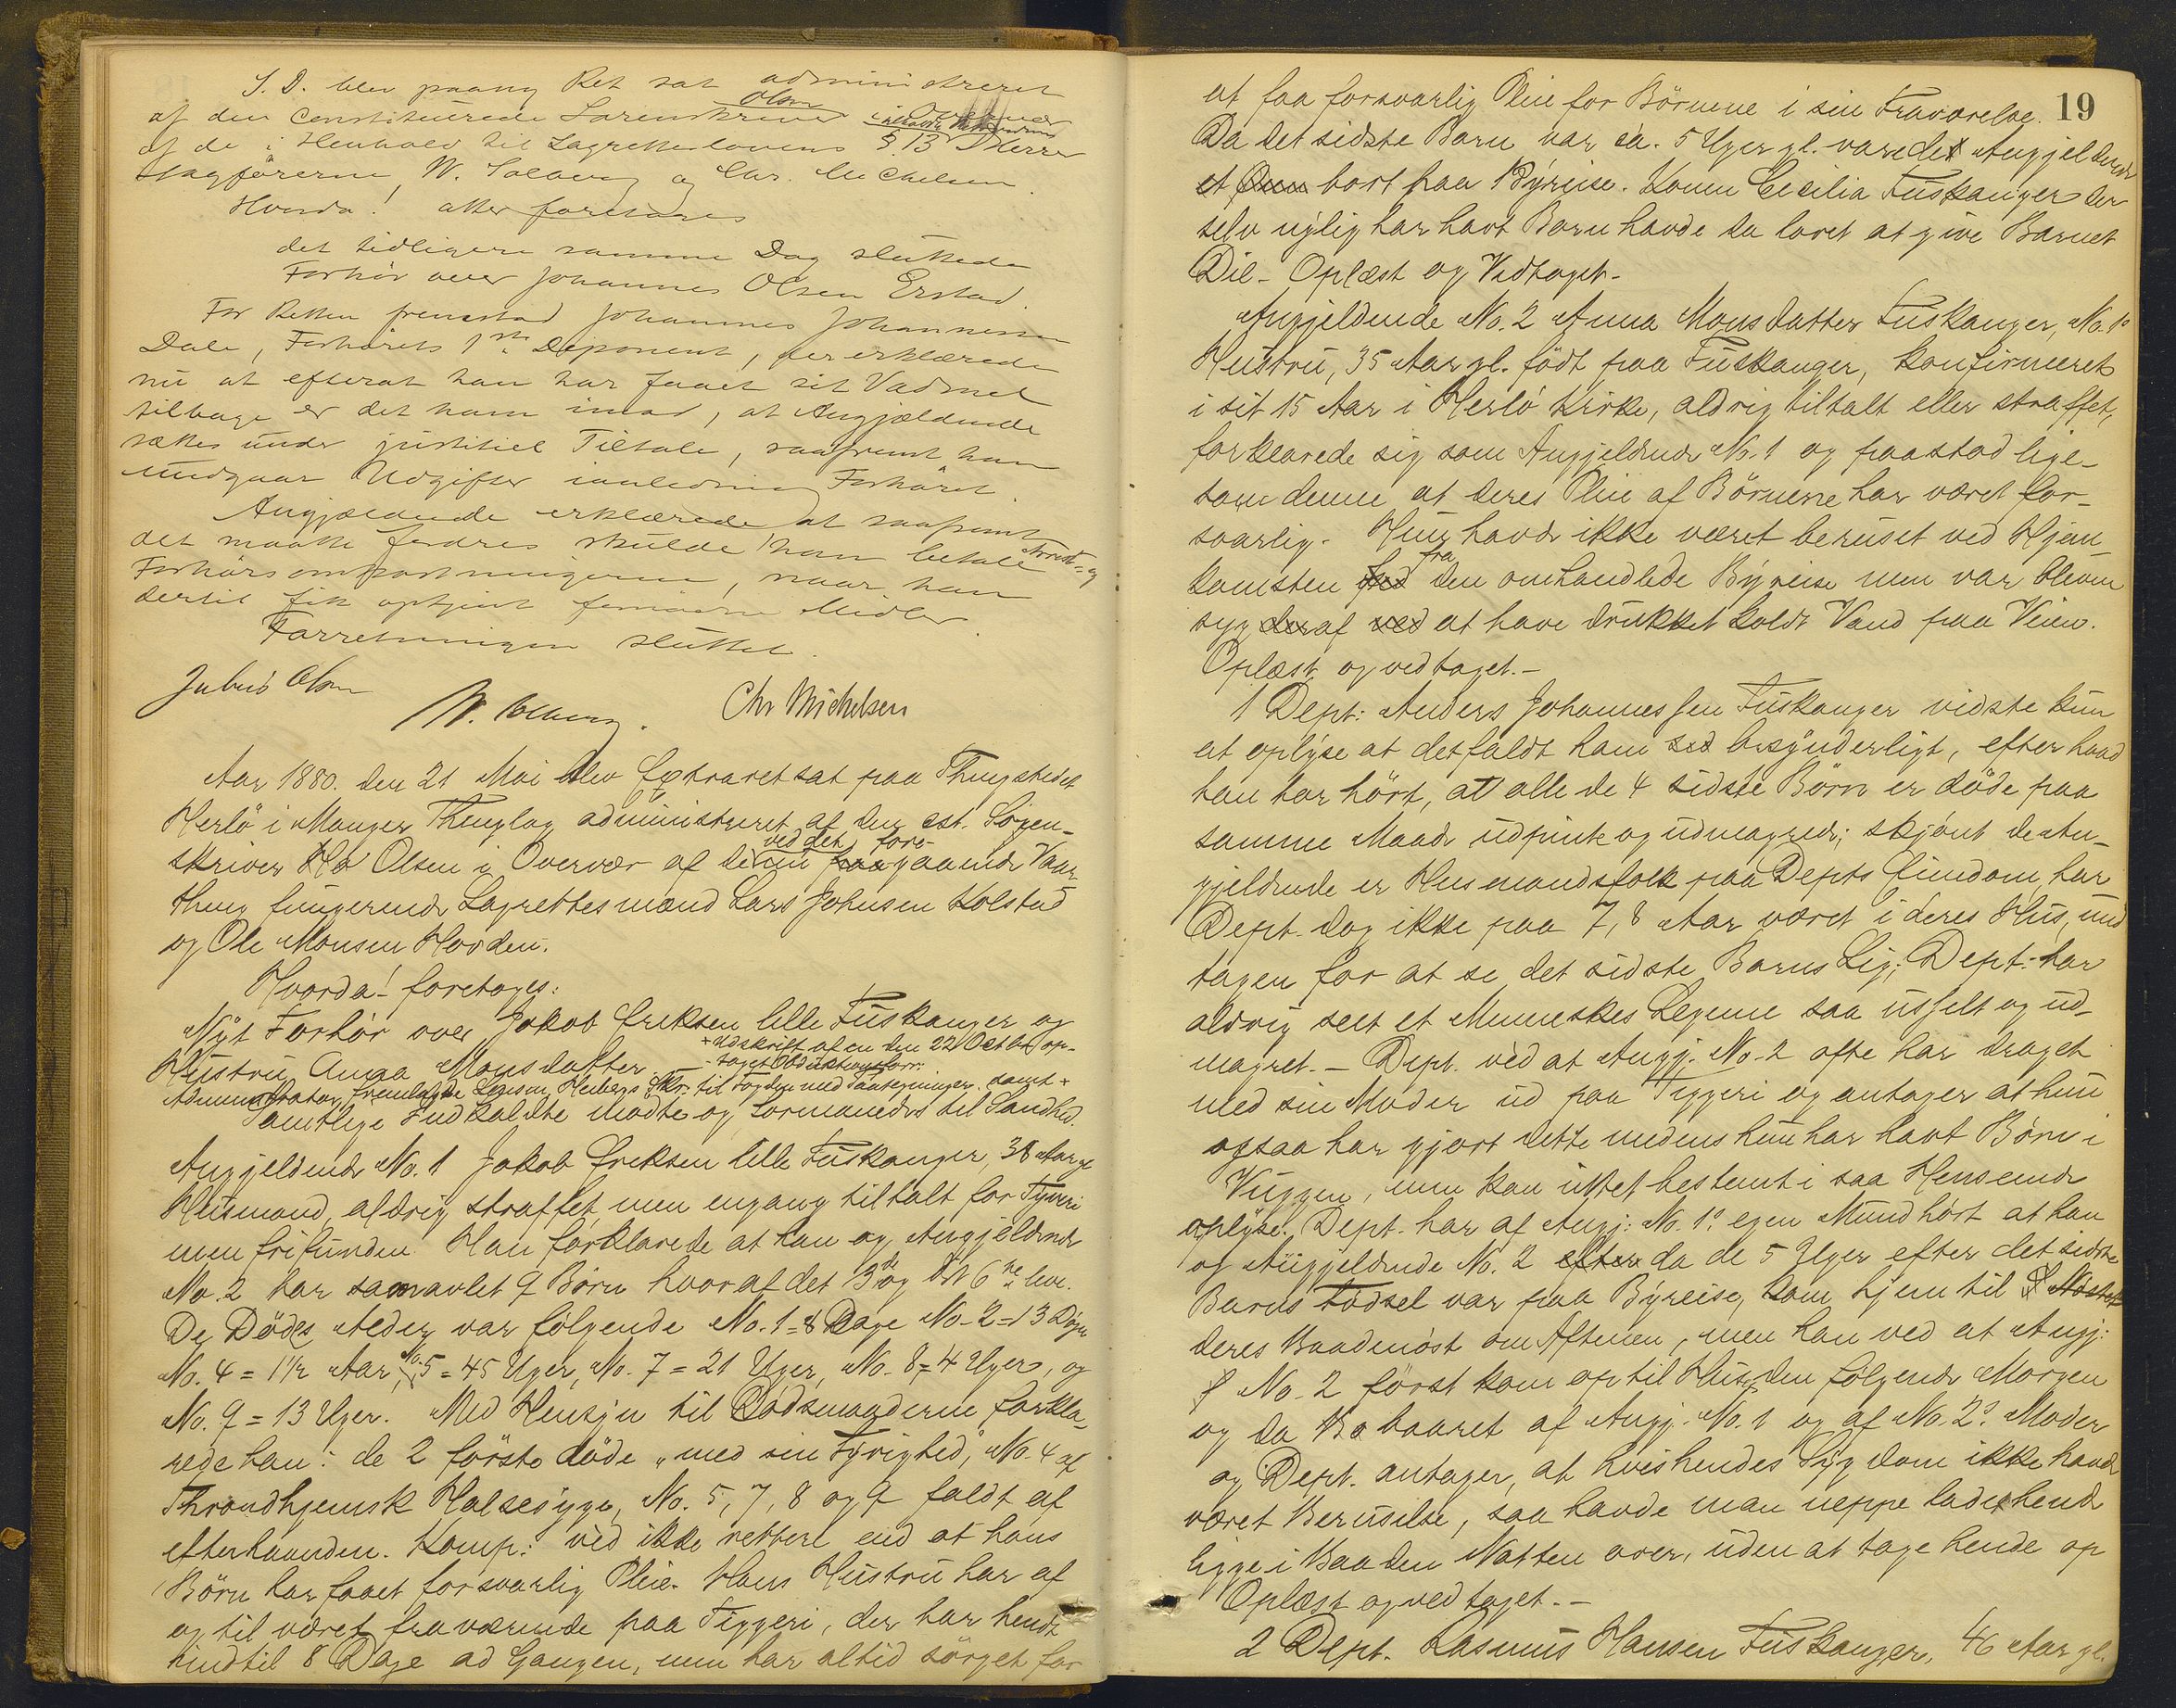 S. D. blev paany Ret sat administreret
af den Constituerede Sorenskriver Olsen i Overvær
af de i Henhold til Lagrettelovens § 13 Herrer
Sagførerne W. Solberg og Chr. Michelsen.
Hvorda! atter foretages
det tidligere samme Dag sluttede
Forhør over Johannes Olsen Erstad.
For Retten fremstod Johannes Johannessen
Dale, Forhørets 1ste Deponent, der erklærede
nu at efterat han har faaet sit Vadmel
tilbage er det ham imod, at Angjældende
sættes under justitiel Tiltale, saafremt han
undgaar Udgifter i anledning Forhøret.
Angjældende erklærede at saafremt
det maatte fordres skulde han betale Arrest- og
Forhørsomkostningerne, naar han
dertil fik optjent fornødne Midler.
Forretningen sluttet.
Julius Olsen
W. Solberg. Chr Michelsen
Aar 1880. den 21 Mai blev Extraret sat paa Thingstedet
Herlö i Manger Thinglag administreret af den cst. Soren-
skriver Hr Olsen i Overvær af de ved det foregaaende Vaar
thing fungerende Lagrettesmænd Lars Johnsen Kolstad
og Ole Monsen Hordén.
Hvorda! foretages:
Nyt Forhör over Jakob Eriksen lille Fuskanger og
Hustru Anna Monsdatter.
+ Udskrift af en den 22 Octbr op-
- taget Obduktionsforr:
Administrator fremlagde Lensm. Heibergs Skr. til Fogden med Paategninger samt +
Samtlige Indkaldte mødte og formanedes til Sandhed.
Angjeldende No. 1 Jakob Eriksen lille Fuskanger, 38 Aar gl
Husmand, aldrig straffet men engang tiltalt for Tyveri
men frifunden Han forklarede at han og Angjeldende
No. 2 har samavlet 9 Börn hvoraf det 3de og det 6te leve.
De Dödes Alder var fölgende No. 1 = 8 Dage No. 2 = 13 Dage
No. 4 = 1½ Aar, No. 5 = 45 Uger, No. 7 = 21 Uger, No. 8 = 4 Uger, og
No. 9 = 13 Uger. Med Hensyn til Dödsmaaderne forkla-
rede han: de 2 förste döde „med sin Fyrighed", No. 4 af
Throndhjemsk Halsesyge, No. 5, 7, 8 og 9 faldt af
efterhaanden. Komp: ved ikke rettere end at hans
Börn har faaet forsvarlig Pleie. Hans Hustru har af
og til været fraværende paa Tiggeri, der har hendt
indtil 8 Dage ad Gangen, men har altid sörget for
19
at faa forsvarlig Pleie for Börnene i sin Fraværelse.
Da det sidste Barn var ca. 5 Uger gl. varede Angjeldende
bort paa Byreise. Konen Cecilia Fuskanger der
selv nylig har havt Barn havde da lovet at give Barnet
Die - Oplæst og Vedtaget.
Angjeldende No. 2 Anna Monsdatter Fuskanger, No. 1s
Hustru, 35 Aar gl. födt paa Fuskanger, konfirmeret
i sit 15 Aar i Herlö Kirke, aldrig tiltalt eller straffet,
forklarede sig som Angjeldende No. 1 og paastod lige-
som denne at deres Pleie af Börnene har været for-
svarlig. Hun havde ikke været beruset ved Hjem-
komsten fra den omhandlede Byreise men var bleven
syg af ved at have drukket koldt Vand paa Veien.
Oplæst og vedtaget.-
1 Dept: Anders Johannessen Fuskanger vidste kun
at oplyse at det faldt ham besynderligt, efter hvad
han har hört, at alle de 4 sidste Börn er döde paa
samme Maade udpinte og udmagrede; skjönt de An-
gjeldende er Husmandsfolk paa Depts Eiendom har
Dept. dog ikke paa 7, 8 Aar været i deres Hus, und
tagen for at se det sidste Barns Lig; Dept: har
aldrig seet et Menneskes Legeme saa usselt og ud-
magret. - Dept. ved at Angj. No. 2 ofte har draget
med sin Moder ud paa Tiggeri og antager at hun
ogsaa har gjort dette medens hun har havt Börn i
Vuggen, men kan intet bestemt i saa Henseende
oplyse. Dept. har af Angj: No. 1s egen Mund hört at han
og Angjeldende No. 2 efter da de 5 Uger efter det sidste
Barns Födsel var paa Byreise, kom hjem til
deres Baadnöst om Aftenen, men han ved at Angj:
No. 2 först kom op til Huse den fölgende Morgen
og da baaret af Angj. No. 1 og af No. 2s Moder
og Dept. antager, at hvis hendes Sygdom ikke havde
været Beruselse, saa havde man neppe ladet hende
ligge i Baaden Natten over, uden at tage hende op
Oplæst og vedtaget.-
2 Dept. Rasmus Hansen Fuskanger, 46 Aar gl.